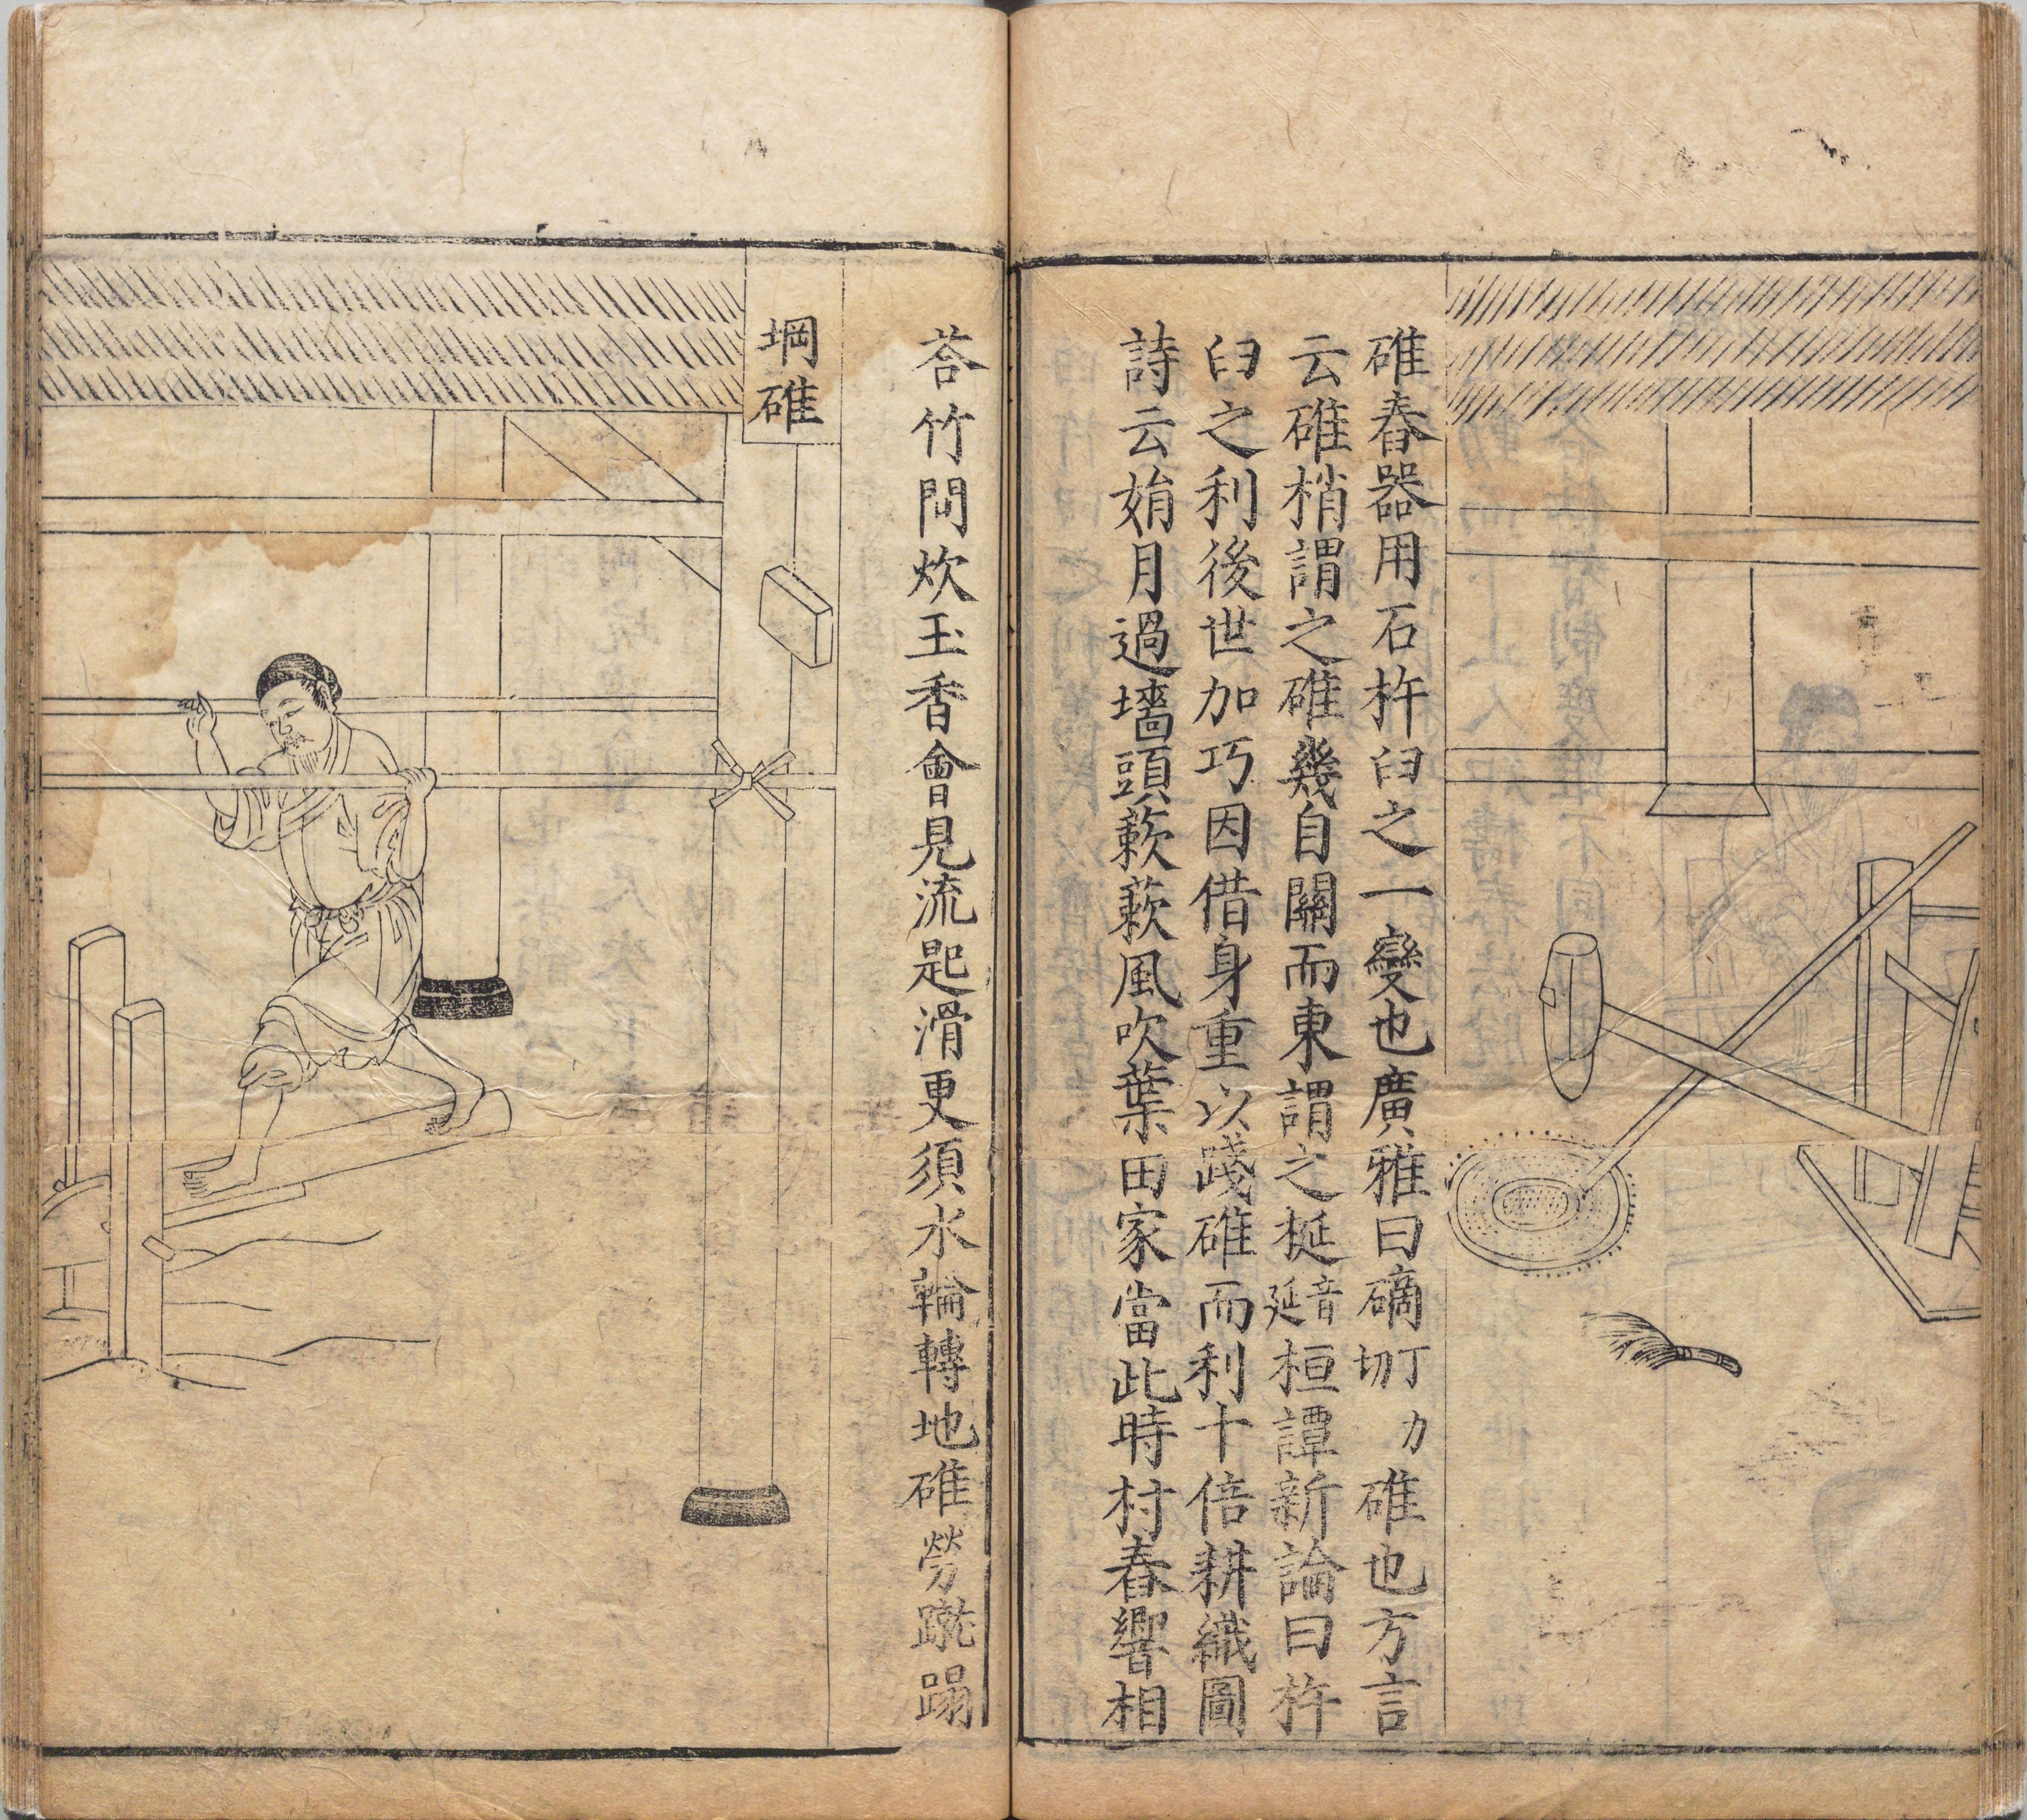 碓舂器用石杵臼之一變也廣雅曰碻丁力切碓也方言
云碓梢謂之碓幾自關而東謂之梴音延桓譚新論曰杵
臼之利後世加巧因借身重以踐碓而利十倍耕織圖
詩云娟月過墻頭蔌蔌風吹葉田家當此時村舂響相
荅竹間炊玉香會見流匙滑更須水輪轉地碓勞蹴蹋
堈碓